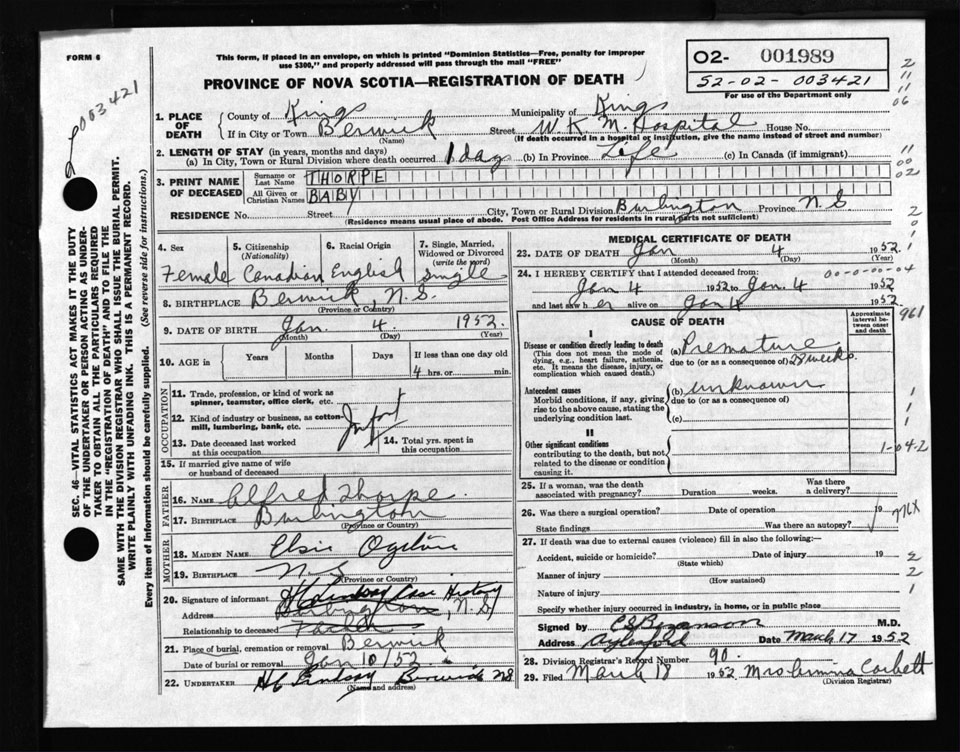 FORM 6
This form, if placed in an envelope, on which is printed "Dominion Statistics—Free, penalty for improper
use $300," and properly addressed will pass through the mail "FREE"
PROVINCE OF NOVA SCOTIA—REGISTRATION OF DEATH
O2- 001989
52-02-003421
For use of the Department only
003421
2
11
11
06
1. PLACE OF DEATH
County of Kings Municipality of Kings
If in City or Town Berwick Street W. K. M. Hospital House No.
(Name) (If death occurred in a hospital or institution, give the name instead of street and number)
2. LENGTH OF STAY (in years, months and days)
(a) In City, Town or Rural Division where death occurred 1 day (b) In Province Life (c) In Canada (if immigrant)
11
00
02
3. PRINT NAME OF DECEASED
Surname or Last Name THORPE
All Given or Christian Names BABY
RESIDENCE No. Street City, Town or Rural Division Burlington Province N.S.
(Residence means usual place of abode. Post Office Address for residents in rural parts not sufficient)
4. Sex Female
5. Citizenship (Nationality) Canadian
6. Racial Origin English
7. Single, Married, Widowed or Divorced (write the word) Single
8. BIRTHPLACE Berwick, N.S.
(Province or Country)
9. DATE OF BIRTH Jan. 4. 1952.
(Month) (Day) (Year)
10. AGE in Years Months Days If less than one day old
4 hrs. or min.
OCCUPATION
11. Trade, profession, or kind of work as
spinner, teamster, office clerk, etc.
12. Kind of industry or business, as cotton-
mill, lumbering, bank, etc.
Infant
13. Date deceased last worked
at this occupation
14. Total yrs. spent in
this occupation
15. If married give name of wife
or husband of deceased
FATHER
16. NAME Alfred Thorpe
17. BIRTHPLACE Burlington
(Province or Country)
MOTHER
18. MAIDEN NAME Elsie Ogilvie
19. BIRTHPLACE N.S.
(Province or Country)
20. Signature of informant Case History
Address Burlington, N.S.
Relationship to deceased Father
21. Place of burial, cremation or removal Berwick
Date of burial or removal Jan 10/52
22. UNDERTAKER Lindsay Berwick NS
(Name and address)
MEDICAL CERTIFICATE OF DEATH
23. DATE OF DEATH Jan 4 1952.
(Month) (Day)
24. I HEREBY CERTIFY that I attended deceased from: 00-0-00-04
Jan 4 1952 to Jan. 4 1952
and last saw h er alive on Jan 4 1952.
961
CAUSE OF DEATH
Approximate interval between onset and death
I
Disease or condition directly leading to death
(This does not mean the mode of
dying, e.g., heart failure, asthenia,
etc. It means the disease, injury, or
complication which caused death.)
(a) Premature
due to (or as a consequence of) 28 weeks.
Antecedent causes
Morbid conditions, if any, giving
rise to the above cause, stating the
underlying condition last.
(b) unknown
due to (or as a consequence of)
(c)
II
Other significant conditions
contributing to the death, but not
related to the disease or condition
causing it.
1-04-2
25. If a woman, was the death
associated with pregnancy? Duration weeks. Was there
a delivery?
26. Was there a surgical operation? Date of operation 19
State findings Was there an autopsy?
27. If death was due to external causes (violence) fill in also the following:—
Accident, suicide or homicide? Date of injury 19
(State which)
Manner of injury
(How sustained)
Nature of injury
Specify whether injury occurred in industry, in home, or in public place
2
2
1
Signed by M.D.
Address Aylesford Date March 17 1952
28. Division Registrar's Record Number 90.
29. Filed March 18 1952 Mrs Corbett
(Division Registrar)
SEC. 46—VITAL STATISTICS ACT MAKES IT THE DUTY
OF THE UNDERTAKER OR PERSON ACTING AS UNDER-
TAKER TO OBTAIN ALL THE PARTICULARS REQUIRED
IN THE "REGISTRATION OF DEATH" AND TO FILE THE
SAME WITH THE DIVISION REGISTRAR WHO SHALL ISSUE THE BURIAL PERMIT.
WRITE PLAINLY WITH UNFADING INK. THIS IS A PERMANENT RECORD.
Every item of information should be carefully supplied. (See reverse side for instructions.)